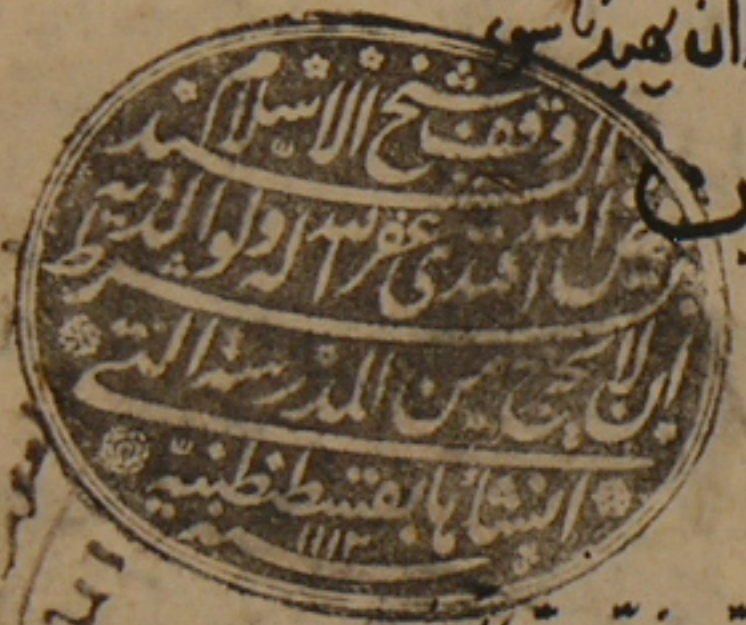 وقف شيخ الاسلام السيد
فيض الله افندى غفر الله له ولوالديه بشرط
ان لا يخرج من المدرسة التى
انشأها بقسطنطنية
سنه ١١١٣